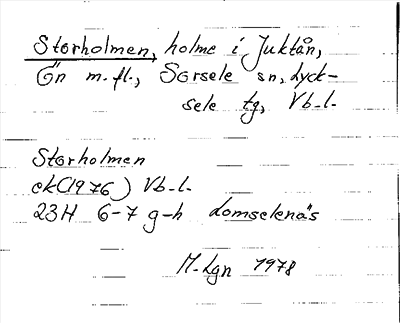 Storholmen, holme i Juktån,
Ön m.fl., Sorsele sn, Lyck-
sele tg, Vb.l.
Storholmen
ek(1976) Vb.l.
23H 6-7 g-h Lomselenäs
M.Lgn 1978